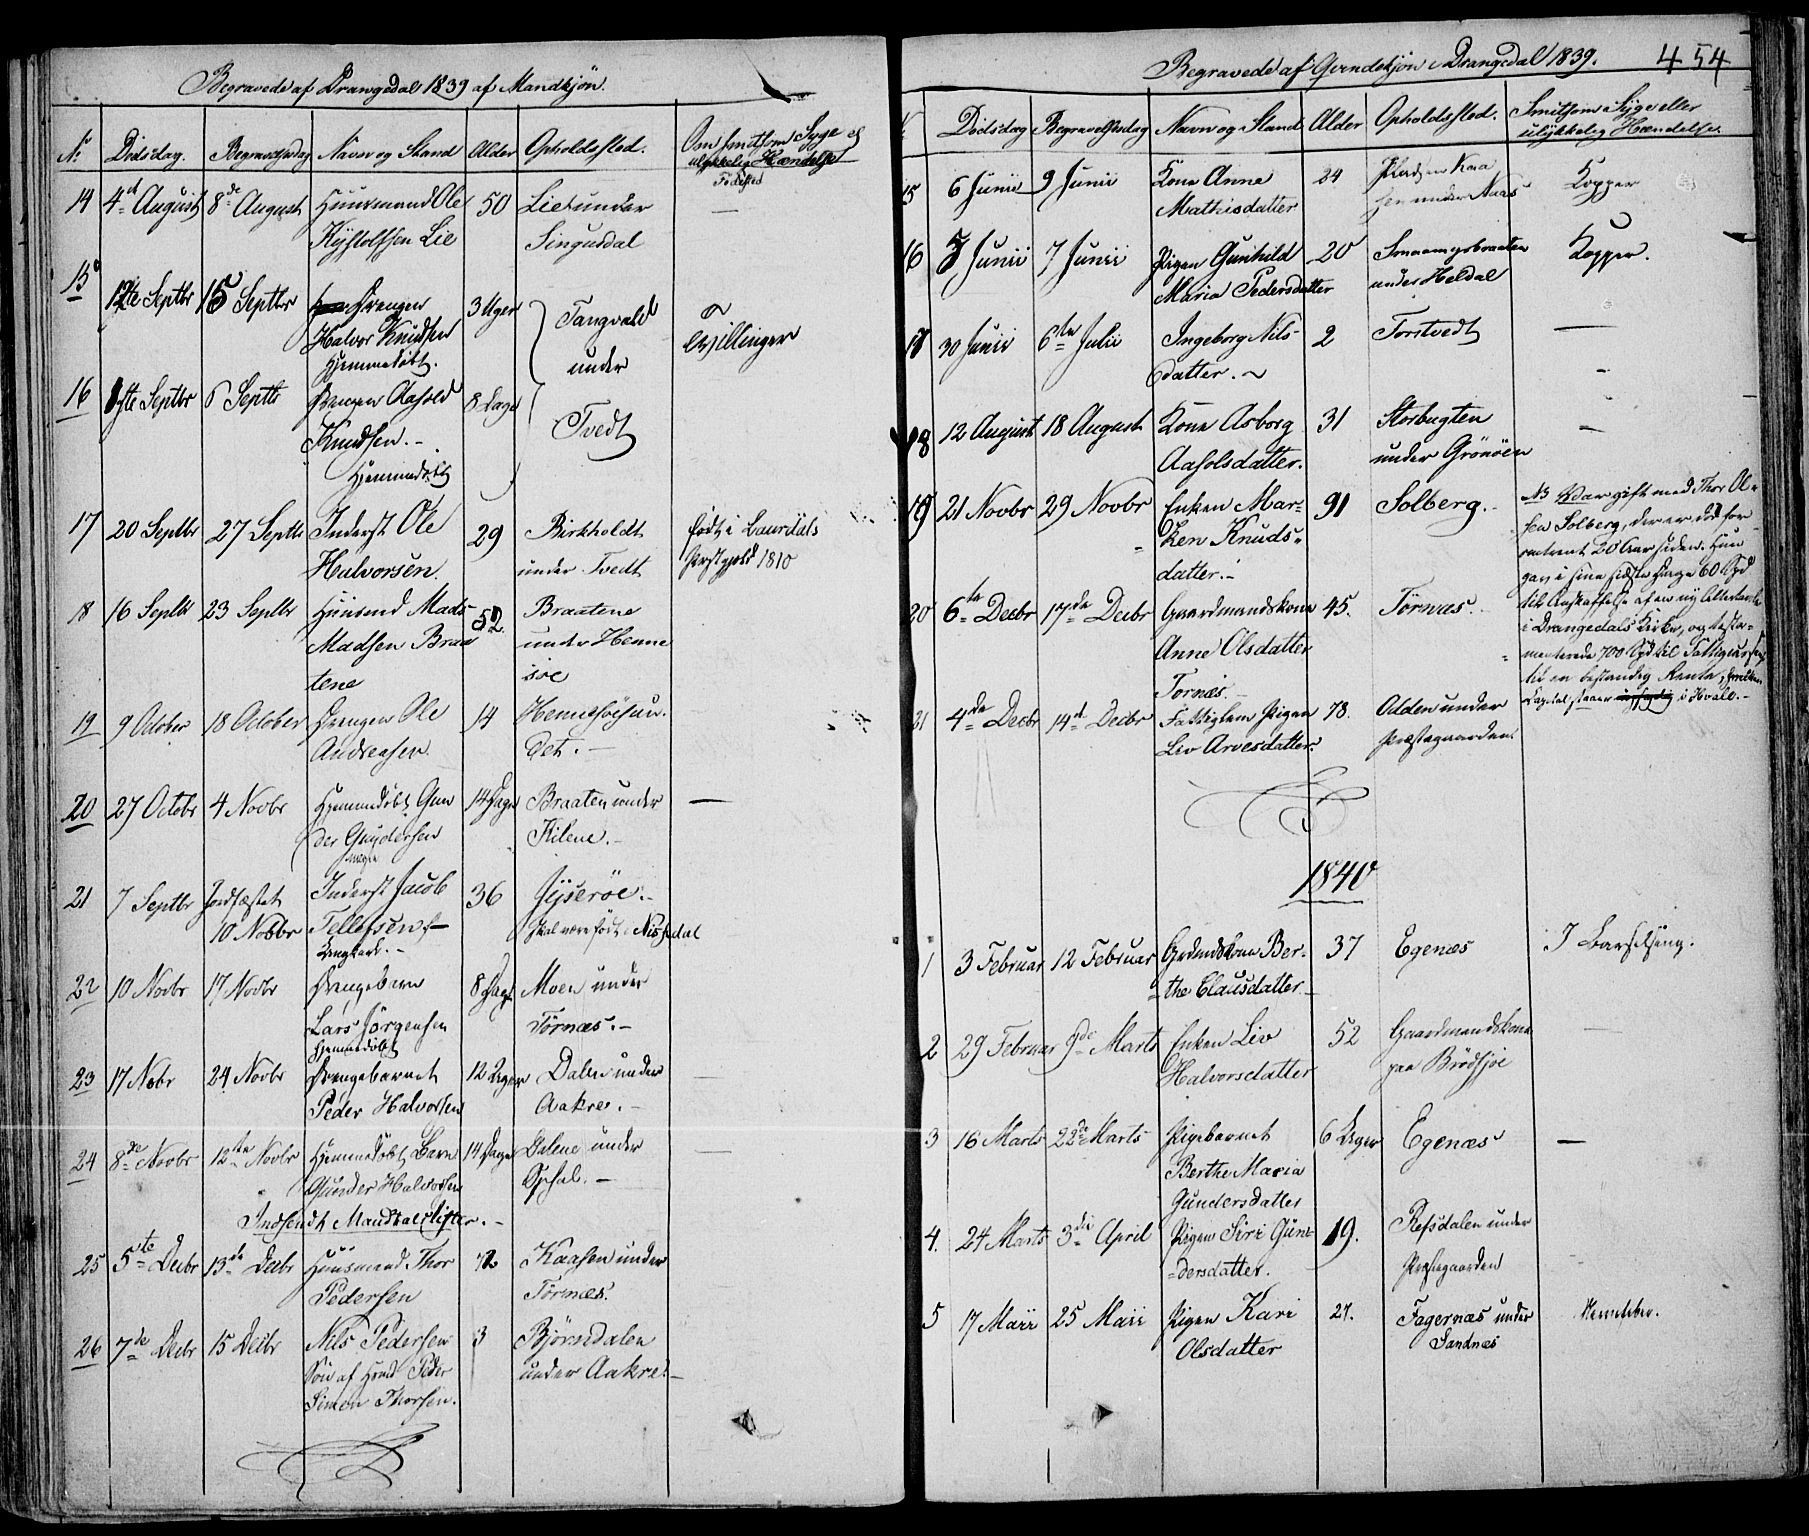 Begravede af Drangedal 1839 af Mandkjön.
No Dödsdag. Begravelsesdag Navn og Stand Alder Opholdssted. Om smitsom Syge el
ulykkelig Hændelse
Födested
14 4de August 8de August Huusmand Ole 50 Lie under —
Kystolfsen Lie Singusdal
15 12te Septbr 15 Septbr Drengen 3 Uger Tangvald
Halvor Knudsen under Tvillinger
Hjemmedöbt.
16 1ste Septbr 6 Septbr Drengen Aasold 8 Dage Tvedt
Knudsen.
Hjemmedöbt
17 20 Septbr 27 Septbr Inderst Ole 29 Birkholdt födt i Laurdals
Halvorsen. under Tvedt Præstegjeld 1810
18 16 Septbr 23 Septbr Huusmd Mads 52. Braatene
Madsen Braa under Henne
tene söe
19 9 October 18 October Drengen Ole 14 Hennesöesun
Andreasen det. —
20 27 Octobr 4 Novbr Hjemmedöbt Gun 14 Dage Braaten under —
der Gundersen Kilene. —
21 7 Septbr Jordfæstet Inderst Jacob 36
10 Novbr Tellefsen skal være födt i Nissedal
22 10 Novbr 17 Novbr Drengebarn 8 Dage Moen under
Lars Jörgensen Törnæs. —
Hjemmedöbt
23 17 Nobr 24 Novbr Drengebarnet 12 Uger Dalen under —
Peder Halvorsen Aakre. —
24 8de Novbr 12te Novbr Hjemmedöbt Barn 14 Dage Dalene under —
Gunder Halvorsen Opsal. —
Indsendt Mandtalslister. —
25 5te Decbr 13de Decbr Huusmand Thor 72 Kaasen under
Pedersen Törnæs.
26 7de Decbr 15 Decbr Nils Pedersen 3 Björndalen
Sön af Hmd Peder under Aakre. —
Simon Thorsen.
Begravede af Qvindekjön i Drangedal 1839. 454
Dödsdag Begravelsesdag Navn og Stand Alder Opholdssted. Smitsom Syge eller
ulykkelig Hændelse.
15 6 Junii 9 Junii Kone Anne 24 Pladsen Kaa Kopper
Mathisdatter sen under Aas
16 5 Junii 7 Junii Pigen Gunhild 20 Smaamyrbraaten Kopper.
Maria Pedersdatter under Heldal
17 30 Junii 6te Julii Ingeborg Nils 2 Torstvedt —
datter. ~
18 12 August 18 August Kone Asborg 31 Storbugten —
Aasolsdatter. under Grönöen
19 21 Novbr 29 Novbr Enken Mar- 91 Solberg. NB Var gift med Thor Ol-
ken Knuds- sen Solberg, der er död for
datter. omtrent 20 Aar siden. Hun
gav i sine sidste Dage 60 Spd
20 6te Decbr 17de Decbr Gaardmandskone 45. Törnæs. til Anskaffelse af en ny Altertavle
Anne Olsdatter i Drangedals Kirke, og testa-
Tornæs. menterede 700 Spd til Fattigvæsenet
til en bestandig Rente, hvilken
21 4de Decbr 14de Decbr Fattiglem Pigen 78. Odden under Capital staaer i Hvale. —
Liv Arvesdatter. Præstegaarden.
1840
1 3 Februar 12 Februar Grdmdskone Ber- 37 Egenæs I Barselseng.
the Clausdatter
2 29 Februar 9de Marts Enken Liv 52 Gaardmandskone —
Halvorsdatter paa Brödsjöe
3 16 Marts 22de Marts Pigebarnet 6 Uger Egenæs —
Berthe Maria
Gundersdatter
4. 24 Marts 3die April Pigen Siri Gun- 19. Refsdalen under
dersdatter. Præstegaarden
5 17 Maii 25 Maii Pigen Kari 27. Fagernæs under
Olsdatter Sandnæs